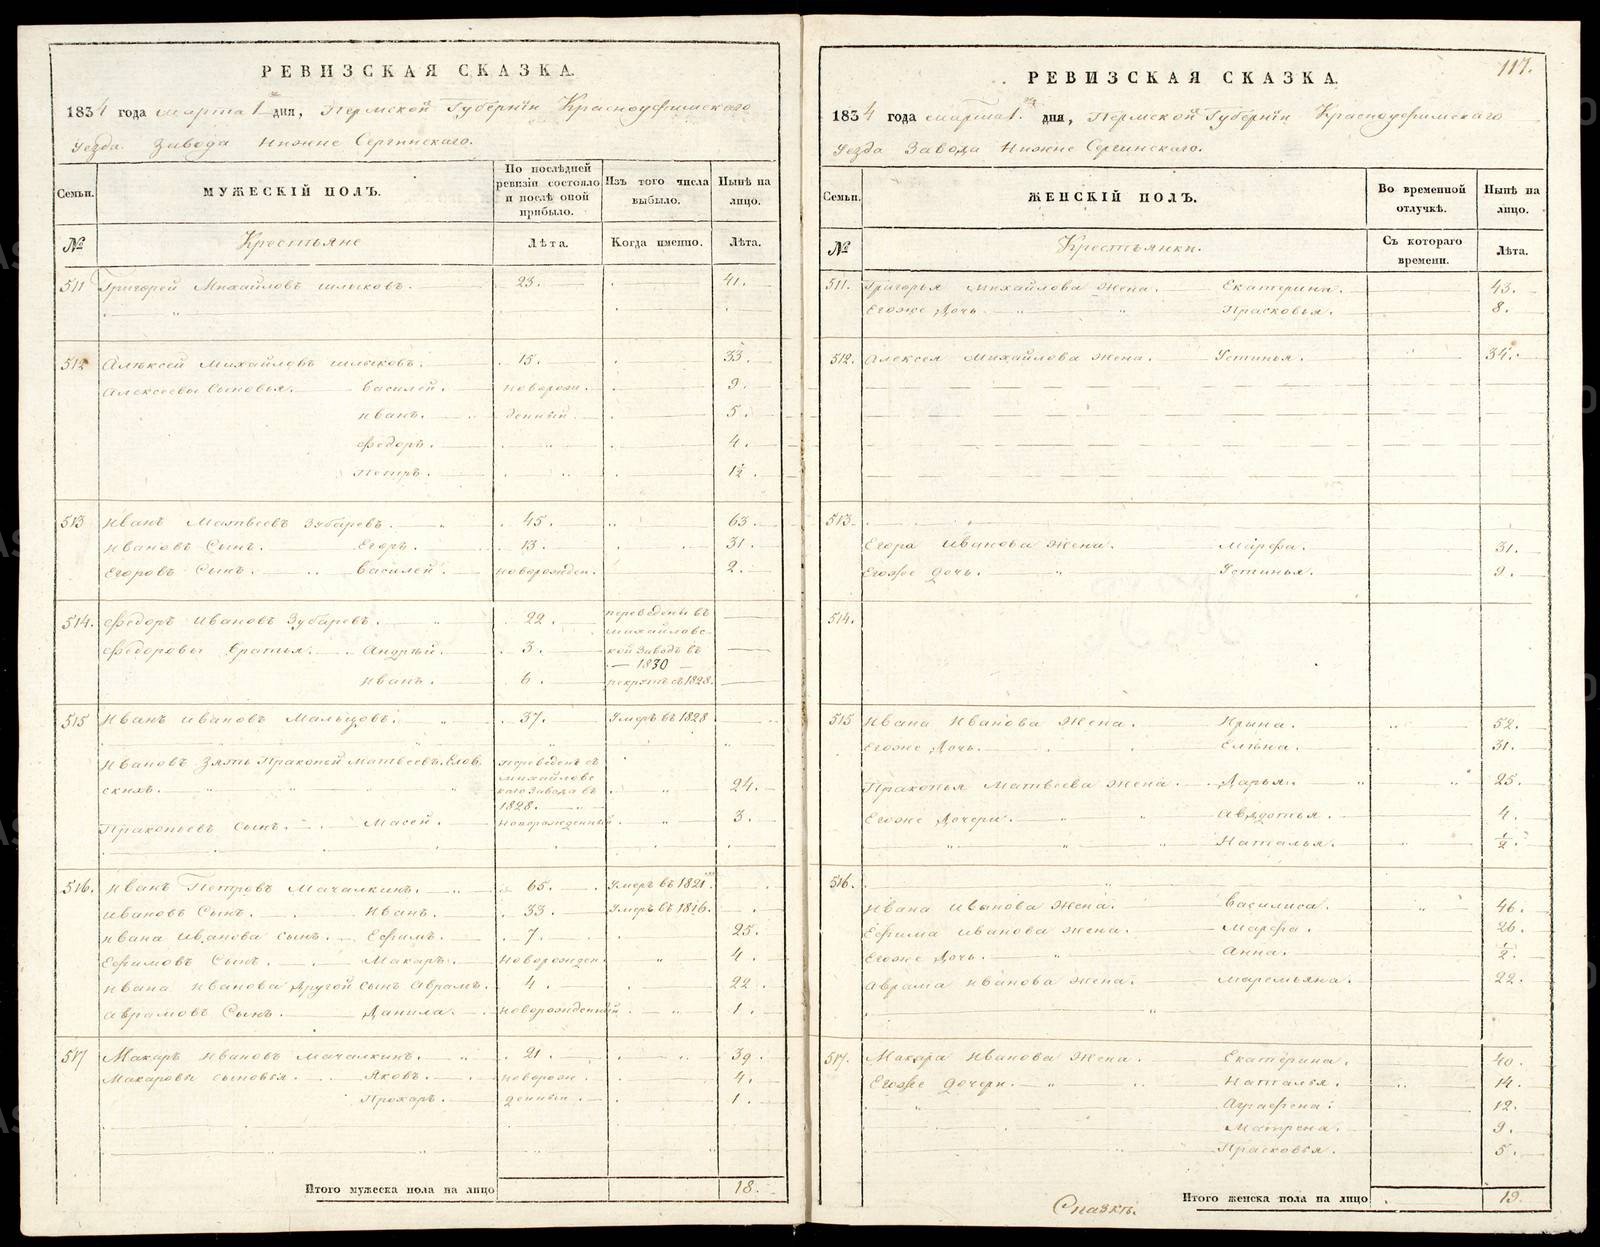 РЕВИЗСКАЯ СКАЗКА.
1834 года марта 1го дня, Пермской Губерніи Красноуфимскаго
уезда завода Нижне Сергинскаго.
Семьи.
МУЖЕСКІЙ ПОЛЪ.
По послѣдней ревизіи состояло и послѣ оной прибыло.
Изъ того числа выбыло.
Нынѣ на лицо.
№
Крестьяне
Лѣта.
Когда именно.
Лѣта.
511 Григорей Михайловъ Шлыковъ. 23. 41.
512 Алѣксей Михайловъ Шлыковъ. 15. 33.
Алексеевы Сыновья. Василей. новорож. 9.
Иванъ. денный 5.
Федоръ. 4.
Петръ. 1½
513 Иванъ Матвеевъ Зубаревъ. 45. 63.
Ивановъ Сынъ. Егоръ. 13. 31.
Егоровъ Сынъ. Василей. новорожден. 2.
514. Федоръ Ивановъ Зубаревъ. 22. переведены въ
Михайловс-
Федоровы братья. Андрѣй. 3. кой Заводъ въ
1830
Иванъ. 6. рекрутъ с 1828.
515 Иванъ Ивановъ Мальцовъ. 37. Умеръ въ 1828
Ивановъ Зять Пракопей Матвеевъ Елов. переведенъ съ
скихъ. Михайловс
каго Завода въ 24.
1828.
Пракопьевъ Сынъ. Масей. новорожденный 3.
516. Иванъ Петровъ Мачалкинъ. 65. Умеръ въ 1821.
Ивановъ Сынъ. Иванъ. 33. Умеръ въ 1816.
Ивана Иванова сынъ. Ефимъ. 7. 25.
Ефимовъ Сынъ. Макаръ. новорожден. 4.
Ивана Иванова Другой сынъ Аврамъ. 4. 22.
Аврамовъ Сынъ. Данила. новорожденный 1.
517 Макаръ Ивановъ Мачалкинъ. 21. 39.
Макаровы сыновья. Яковъ. новорож. 4.
Прохаръ. денныи 1.
Итого мужеска пола на лицо 18.
117.
РЕВИЗСКАЯ СКАЗКА.
1834 года марта 1го дня, Пермской Губерніи Красноуфимскаго
Уезда Завода Нижне Сергинскаго.
Семьи.
ЖЕНСКІЙ ПОЛЪ.
Во временной отлучкѣ.
Нынѣ на лицо.
№
Крестьянки.
Съ котораго времени.
Лѣта.
511. Григорья Михайлова Жена. Екатерина. 43.
Егоже Дочь Прасковья. 8.
512. Алексея Михайлова Жена. Устинья. 34.
513.
Егора Иванова Жена. Марфа. 31.
Егоже Дочь. Устинья. 9.
514.
515 Ивана Иванова Жена. Ирина. 52.
Егоже Дочь. Елѣна. 31.
Пракопья Матвеева Жена. Дарья. 25.
Егоже Дочери. Авдотья. 4.
Наталья. ½.
516.
Ивана Иванова Жена. Василиса. 46.
Ефима Иванова Жена. Марфа. 26.
Егоже Дочь. Анна. ½.
Аврама Иванова Жена. Маремьяна. 22.
517. Макара Иванова Жена. Екатерина. 40.
Егоже Дочери. Наталья. 14.
Аграфена. 12.
Матрена. 9.
Прасковья. 5.
Итого женска пола на лицо 19.